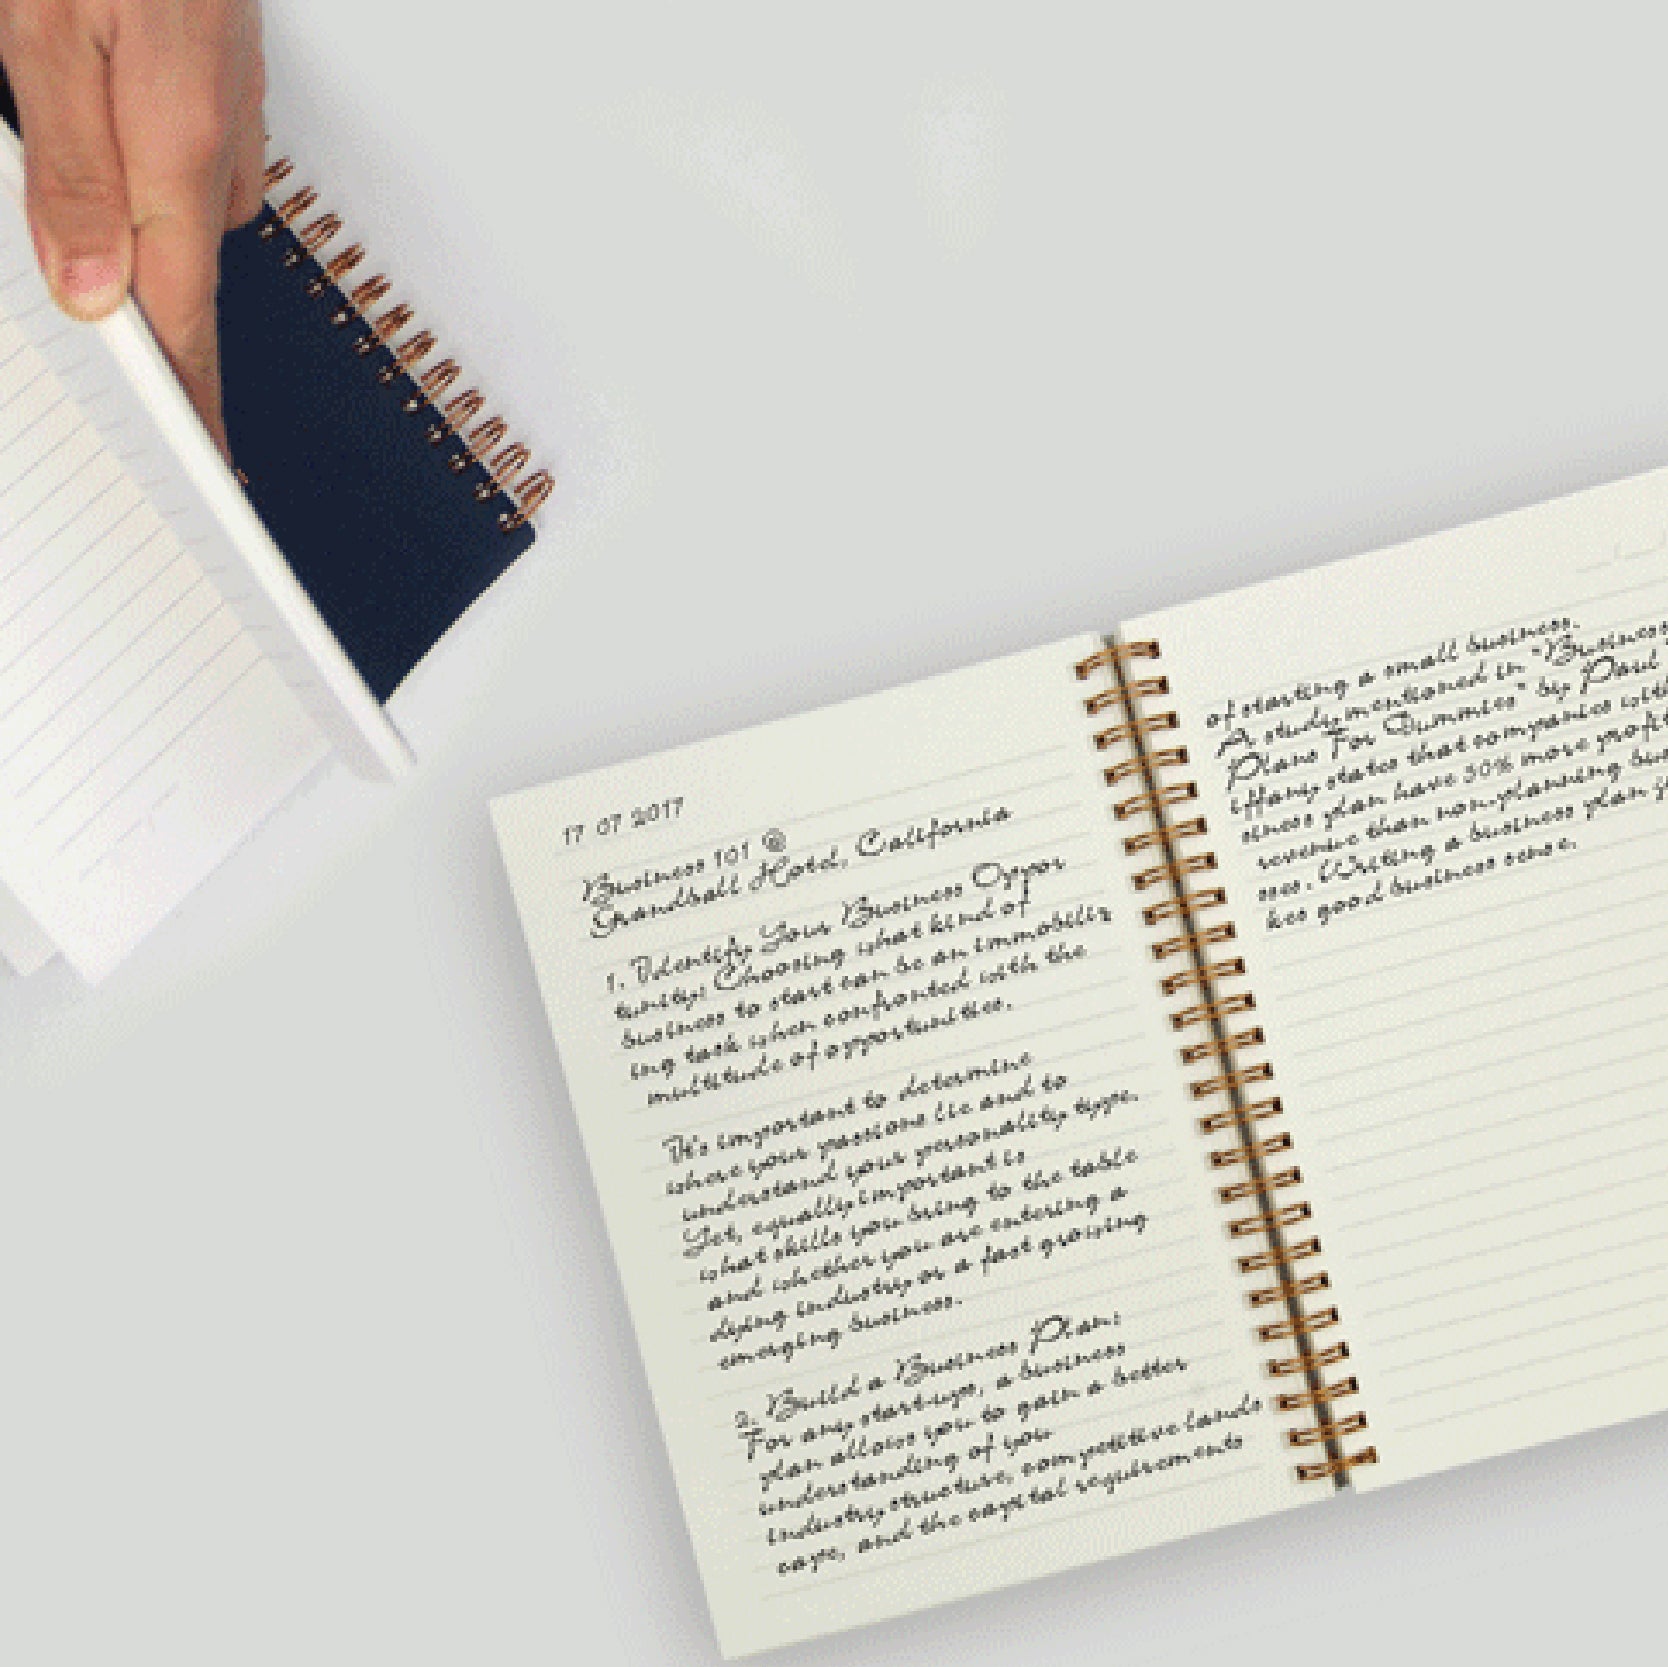 17 07 2017
Business 101 @
Grandball Hotel, California
1. Identify Your Business Oppor
tunity: Choosing what kind of
business to start can be an immobiliz
ing task when confronted with the
multitude of opportunities.
It's important to determine
where your passions lie and to
understand your personality type.
Yet, equally important is
what skills you bring to the table
and whether you are entering a
dying industry or a fast growing
emerging business.
2. Build a Business Plan:
For any start-ups, a business
plan allows you to gain a better
understanding of you
industry structure, competitive lands
cape, and the capital requirements
of starting a small business.
A study mentioned in "Business
Plans For Dummies" by Paul
iffany states that companies with
siness plan have 50% more profit
revenue than non-planning bus
sses. Writing a business plan
kes good business sense.